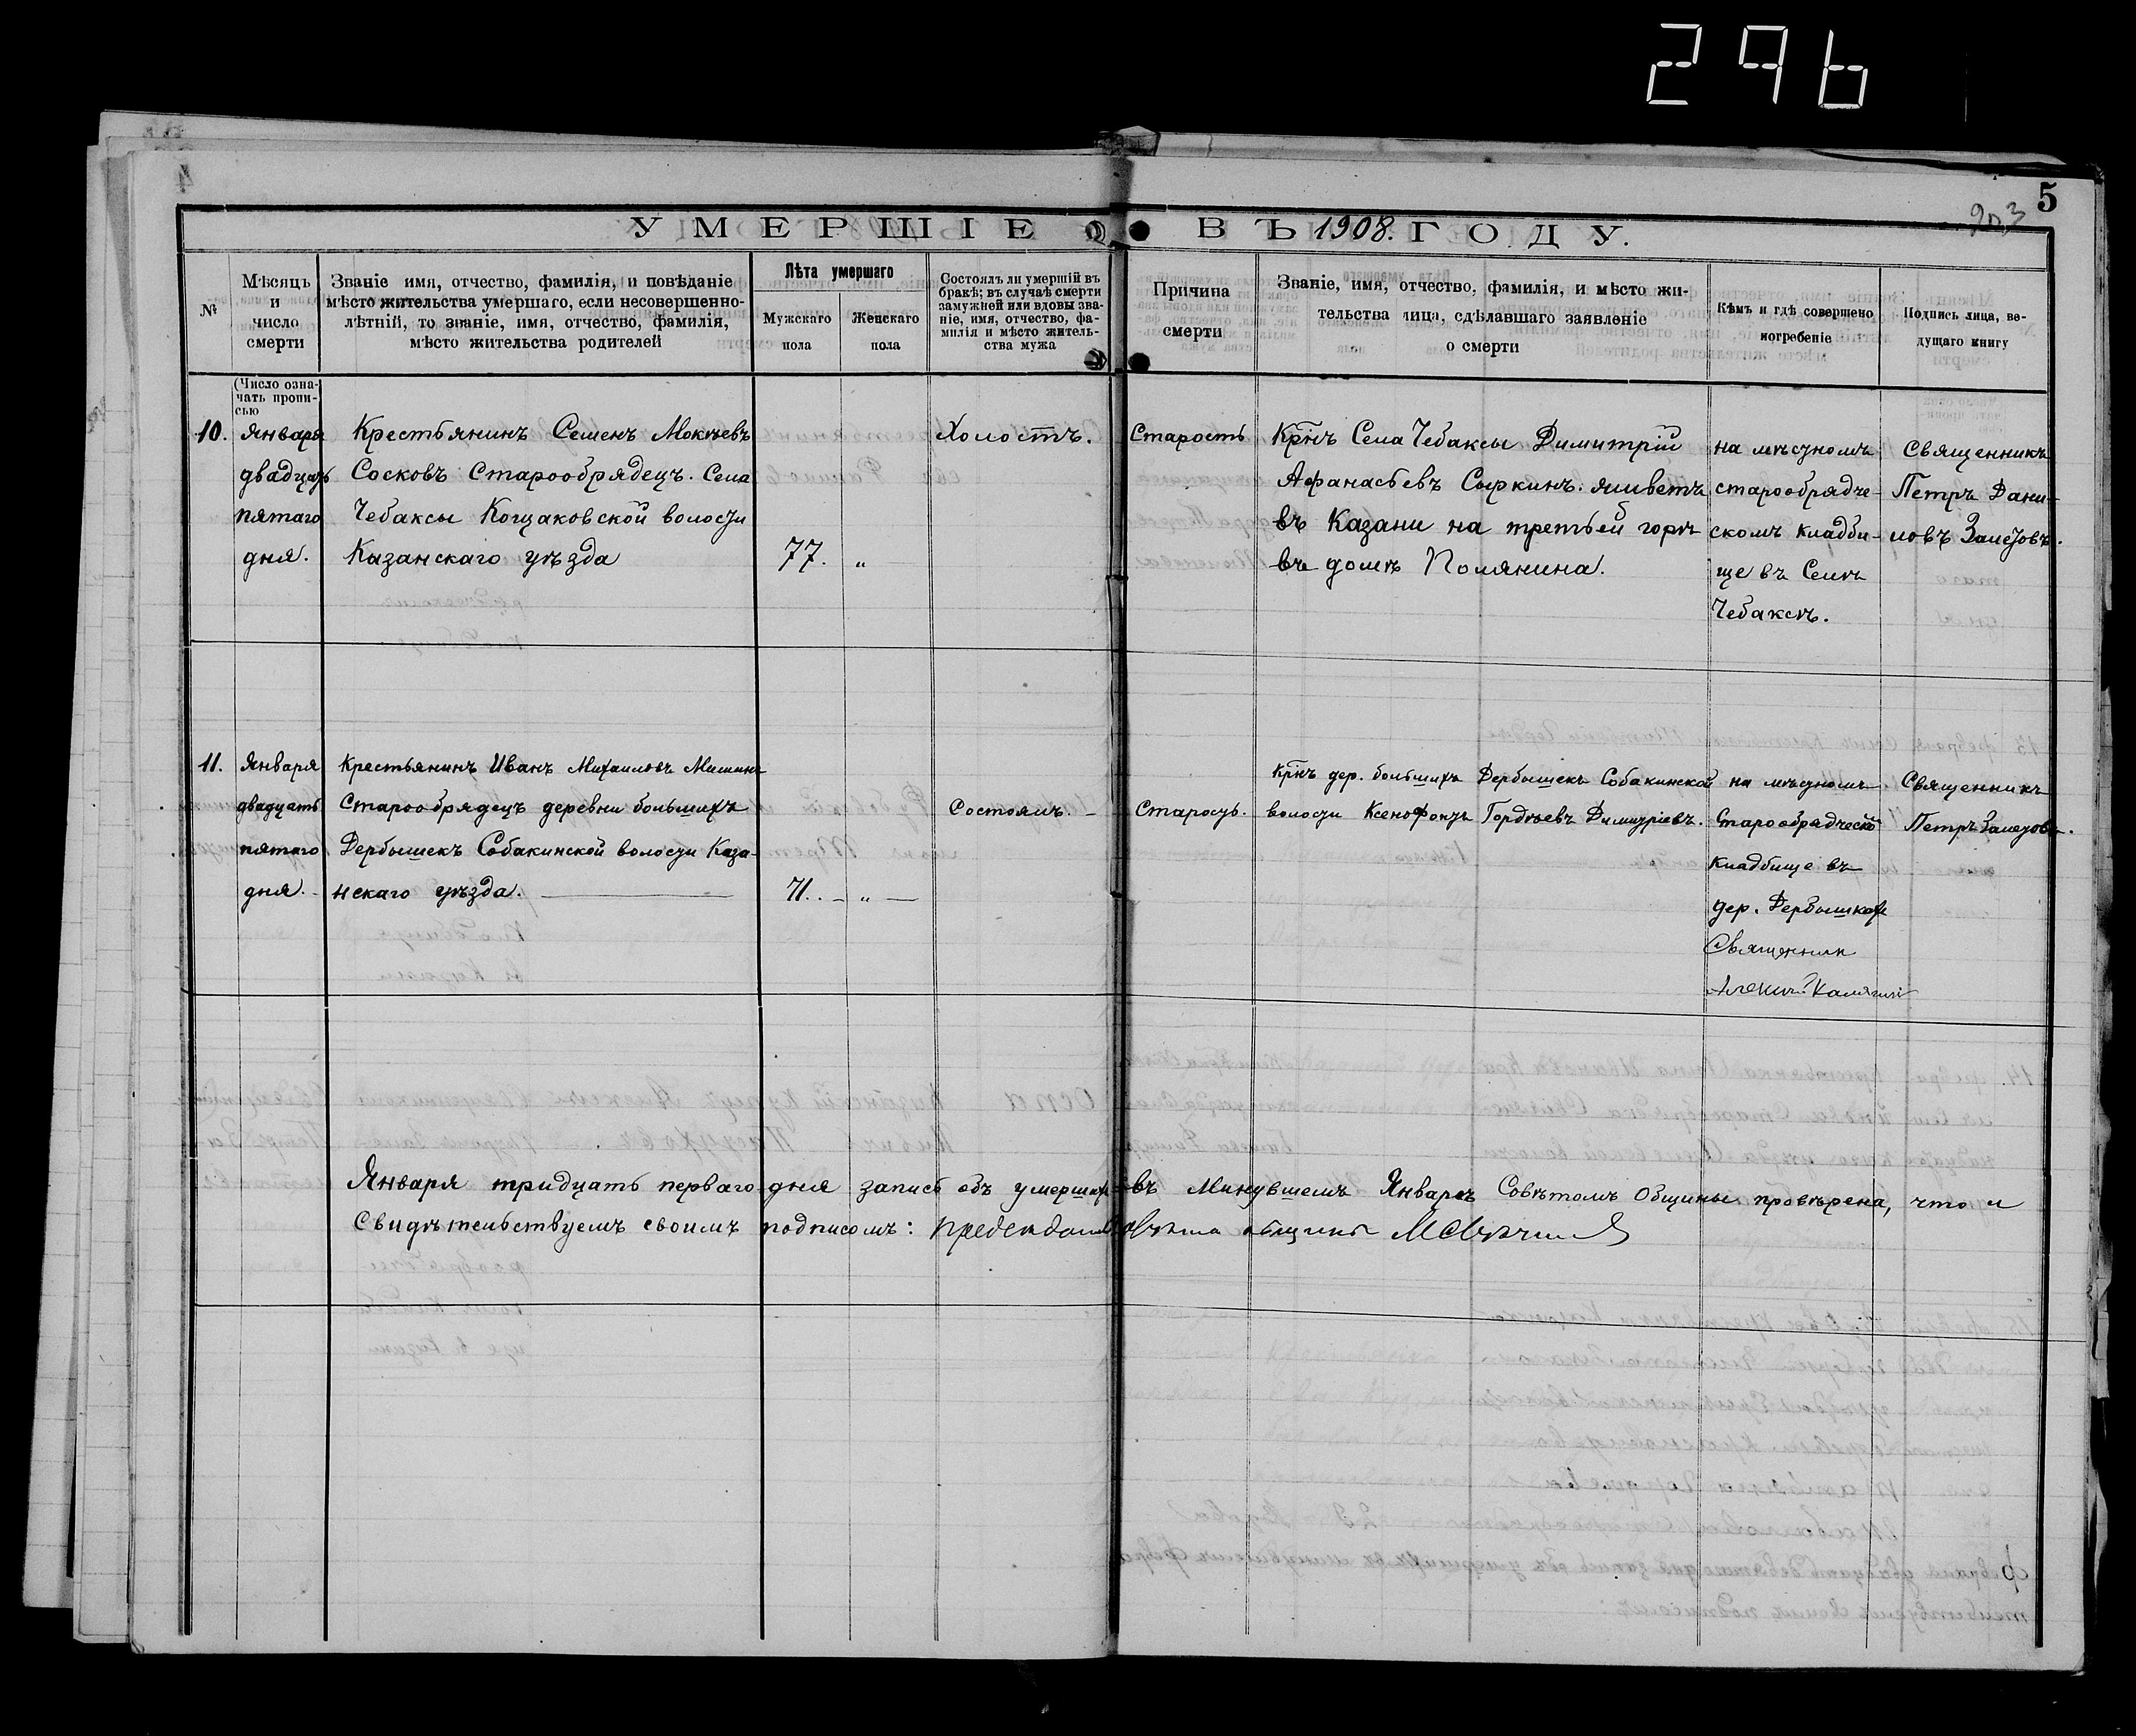 296
5
903
УМЕРШІЕ ВЪ 1908. ГОДУ.
№
Мѣсяцъ
и
число
смерти
Званіе имя, отчество, фамилія, и повѣданіе
мѣсто жительства умершаго, если несовершенно-
лѣтній, то званіе, имя, отчество, фамилія,
мѣсто жительства родителей
Лѣта умершаго
Мужскаго
пола
Женскаго
пола
Состоялъ ли умершій въ
бракѣ; въ случаѣ смерти
замужней или вдовы зва-
ніе, имя, отчество, фа-
милія и мѣсто житель-
ства мужа
Причина
смерти
Званіе, имя, отчество, фамилія, и мѣсто жи-
тельства лица, сдѣлавшаго заявленіе
о смерти
Кѣмъ и гдѣ совершено
погребеніе
Подпись лица, ве-
дущаго книгу
(Число озна-
чать пропи-
сью
10.
Января
двадцать
пятаго
дня.
Крестьянинъ Семенъ Мокѣевъ
Сосковъ Старообрядецъ. Села
Чебаксы Кощаковской волости
Казанскаго уѣзда
77. „
Холостъ.
Старость
Крнъ Села Чебаксы Димитрій
Афанасьевъ Сыркинъ: живетъ
въ Казани на третьей горѣ
въ домѣ Полянина.
на мѣстномъ
старообрядче-
скомъ кладби-
ще въ Селѣ
Чебаксѣ.
Священникъ
Петръ Дани-
ловъ Залетовъ.
11.
Января
двадцать
пятаго
дня.
Крестьянинъ Иванъ Михаиловъ Мишинъ
Старообрядецъ деревни большихъ
Дербышекъ Собакинской волости Каза-
нскаго уѣзда.
71. „
Состоялъ.
Старость.
Крнъ дер. большихъ Дербышекъ Собакинской
волости Ксенофонтъ Гордѣевъ Димитріевъ.
на мѣстномъ
Старообрядческо
кладбище въ
дер. Дербышках
Священник
Алексѣй Калягин
Священникъ
Петръ Залетовъ.
Января тридцать перваго дня запись объ умерших въ Минувшемъ Январѣ Совѣтомъ Общины провѣрена, что и
Свидѣтельствуемъ своимъ подписомъ: Председатель Совѣта общины